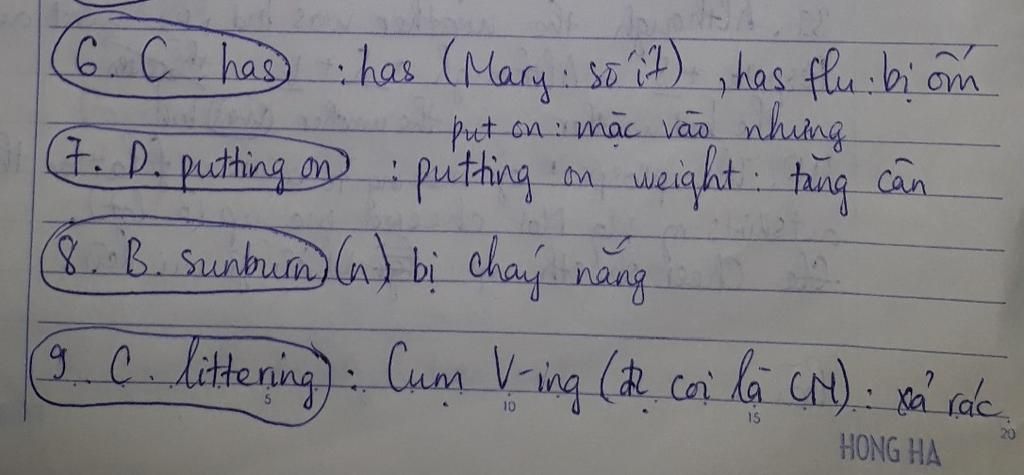 6. C. has : has (Mary: số ít), has flu: bị ốm
put on: mặc vào nhưng
7. D. putting on : putting on weight: tăng cân
8. B. sunburn (n) bị cháy nắng
9. C. littering : Cụm V-ing (đc coi là CN): xả rác
5 10 15 20
HONG HA